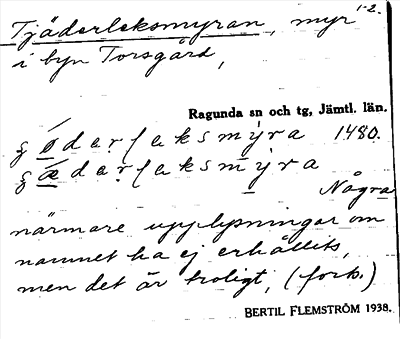 1-2.
Tjäderleksmyran, myr
i byn Torsgård,
Ragunda sn och tg, Jämtl. län.
gøderleksmyra 1480.
gæderleksmyra
Några
närmare upplysningar om
namnet ha ej erhållits,
men det är troligt, (forts.)
BERTIL FLEMSTRÖM 1938.